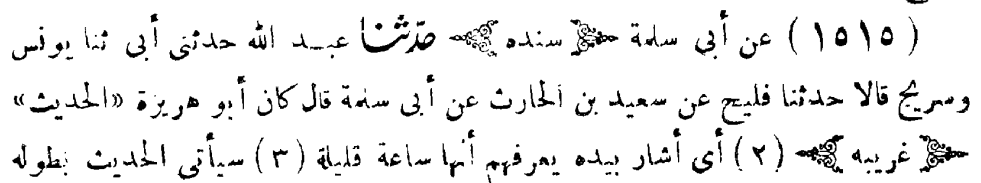 ( ١٥١٥ ) عن أبى سلمة ﴿ سنده ﴾ حدثنا عبد الله حدثنى أبى ثنا يونس
وسريج قالا حدثنا فليح عن سعيد بن الحارث عن أبى سلمة قال كان أبو هريرة «الحديث»
﴿ غريبه ﴾ ( ٢ ) أى أشار بيده يعرفهم أنها ساعة قليلة ( ٣ ) سيأتى الحديث بطوله